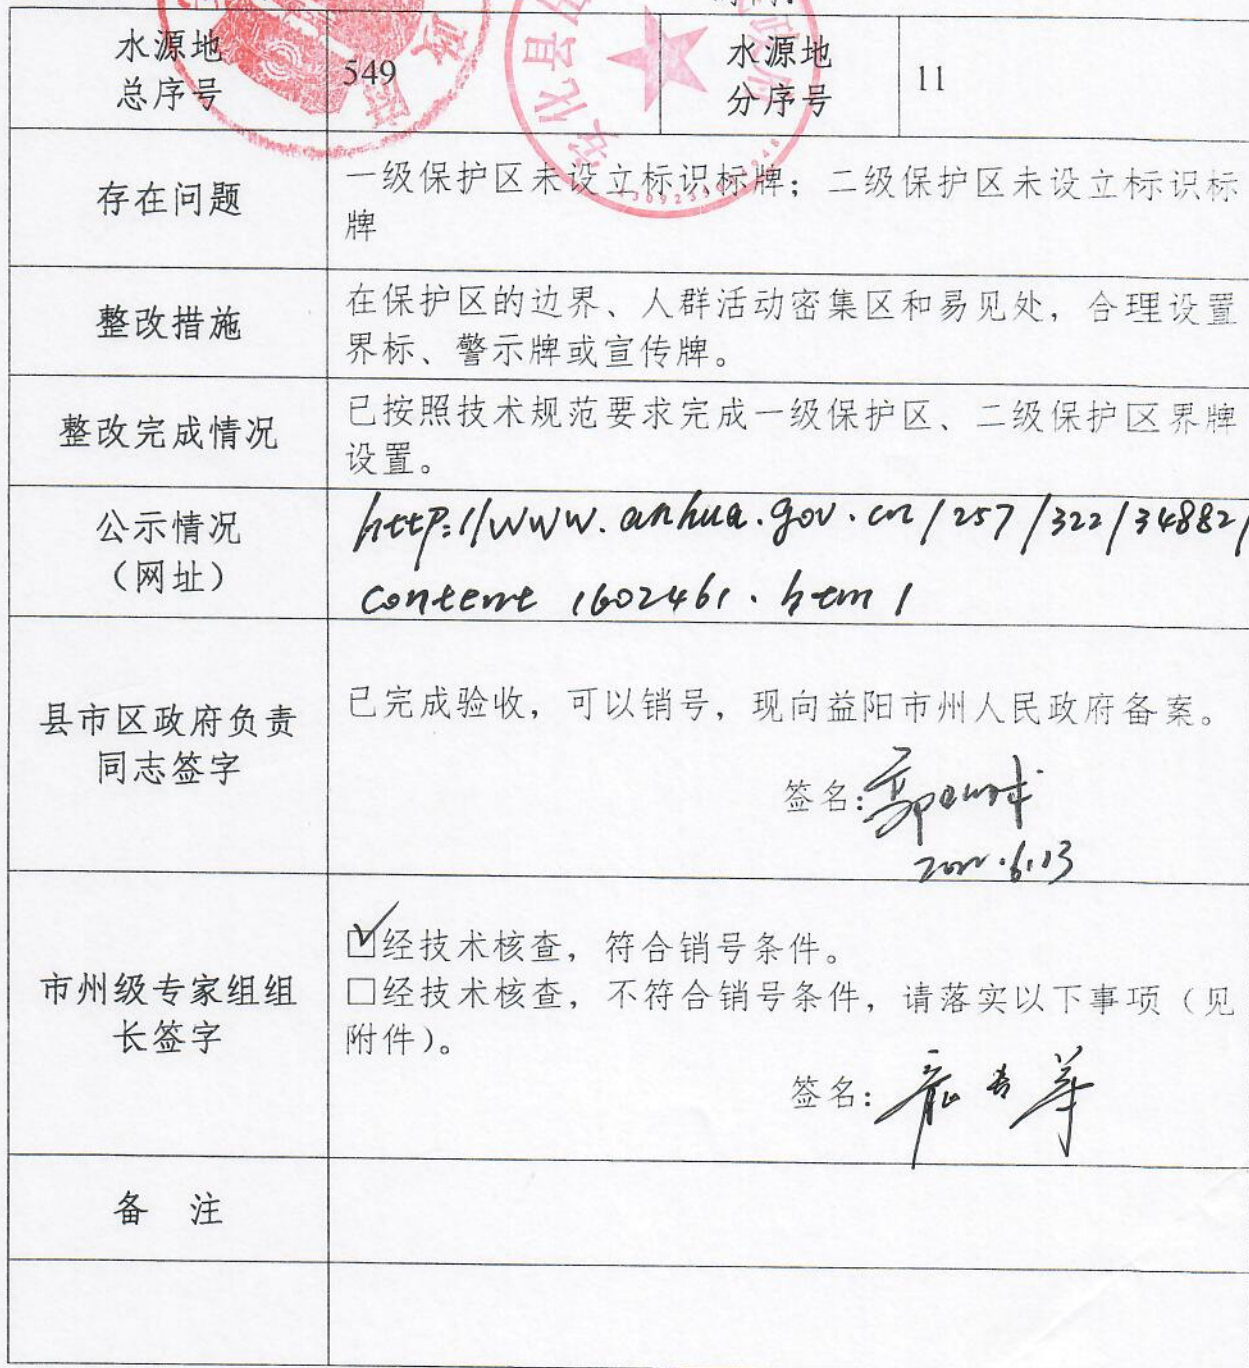 水源地
总序号
549
水源地
分序号
11
存在问题
一级保护区未设立标识标牌；二级保护区未设立标识标
牌
整改措施
在保护区的边界、人群活动密集区和易见处，合理设置
界标、警示牌或宣传牌。
整改完成情况
已按照技术规范要求完成一级保护区、二级保护区界牌
设置。
公示情况
（网址）
http://www.anhua.gov.cn/257/322/34882/
content 1602461.html
县市区政府负责
同志签字
已完成验收，可以销号，现向益阳市州人民政府备案。
签名:
2022.6.13
市州级专家组组
长签字
☑经技术核查，符合销号条件。
□经技术核查，不符合销号条件，请落实以下事项（见
附件）。
签名:
备 注
安化县